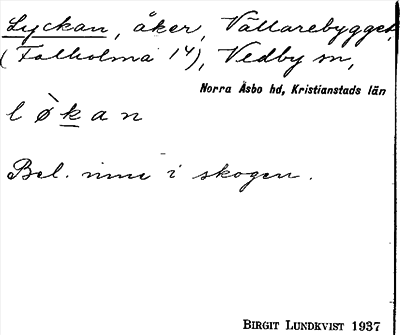 Lyckan, åker, Vällarebygget
(Folholma 1⁴), Vedby sn,
Norra Åsbo hd, Kristianstads län
l ø̀ k a n
Bel. inne i skogen.
BIRGIT LUNDKVIST 1937